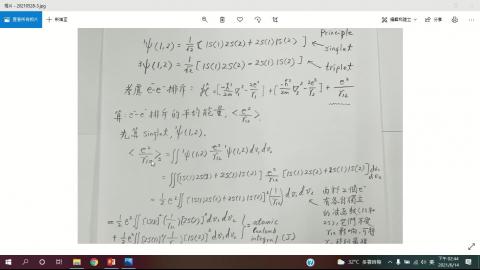 相片 - 20210528-3.jpg
查看所有相片
編輯與建立
分享
Principle
¹ψ(1,2) = 1/√2 [1S(1)2S(2) + 2S(1)1S(2)] ← singlet
³ψ(1,2) = 1/√2 [1S(1)2S(2) - 2S(1)1S(2)] ← triplet
考慮 e⁻-e⁻ 排斥:
算 e⁻-e⁻ 排斥的平均能量, <e²/r₁₂>
先算 singlet, ¹ψ(1,2).
<e²/r₁₂>s = ∬ ¹ψ(1,2) e²/r₁₂ ¹ψ(1,2) dv₁dv₂
= ∬ 1/√2[1S(1)2S(2) + 2S(1)1S(2)] e²/r₁₂ [1S(1)2S(2) + 2S(1)1S(2)] dv₁ dv₂
= 1/2 e² ∬ [1S(1)2S(2) + 2S(1)1S(2)]² (1/r₁₂) dv₁dv₂
由於 2 個 e⁻
有各自獨立
= 1/2 e² ∬ [1S(1)]² (1/r₁₂) [2S(2)]² dv₁dv₂
+ 1/2 e² ∬ [2S(1)]² (1/r₁₂) [1S(2)]² dv₁dv₂
= atomic
coulomb
integral (J)
32°C
下午 02:44
2021/6/14